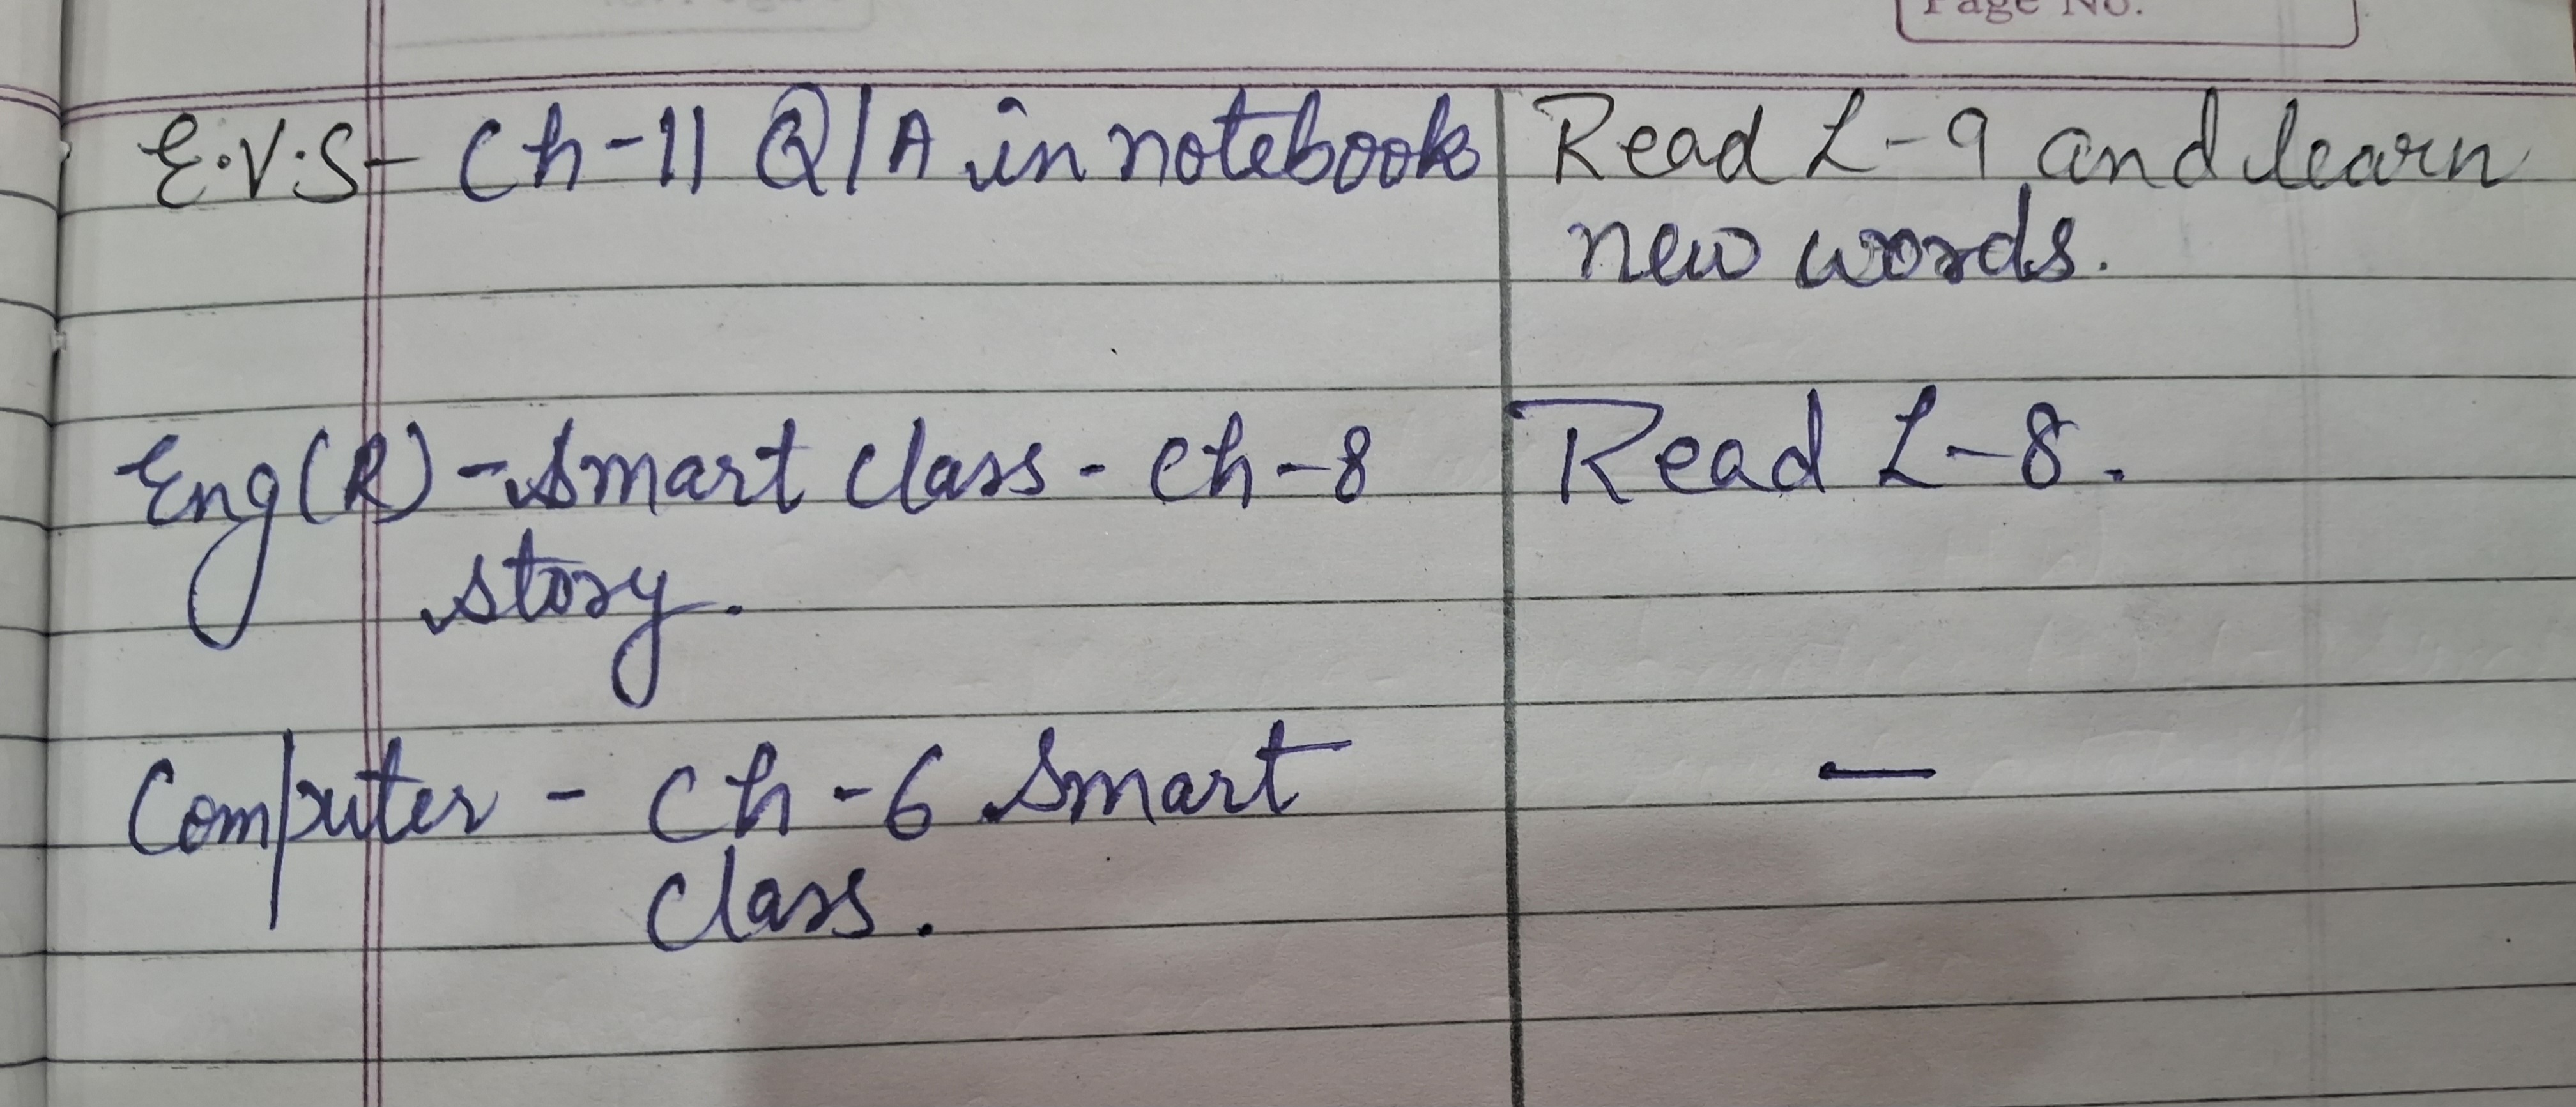 Page No.
E.V.S - Ch-11 Q/A in notebook
Read L-9 and learn
new words.
Eng(R) - Smart class - Ch-8
story.
Read L-8.
Computer - Ch-6 Smart
class.
—